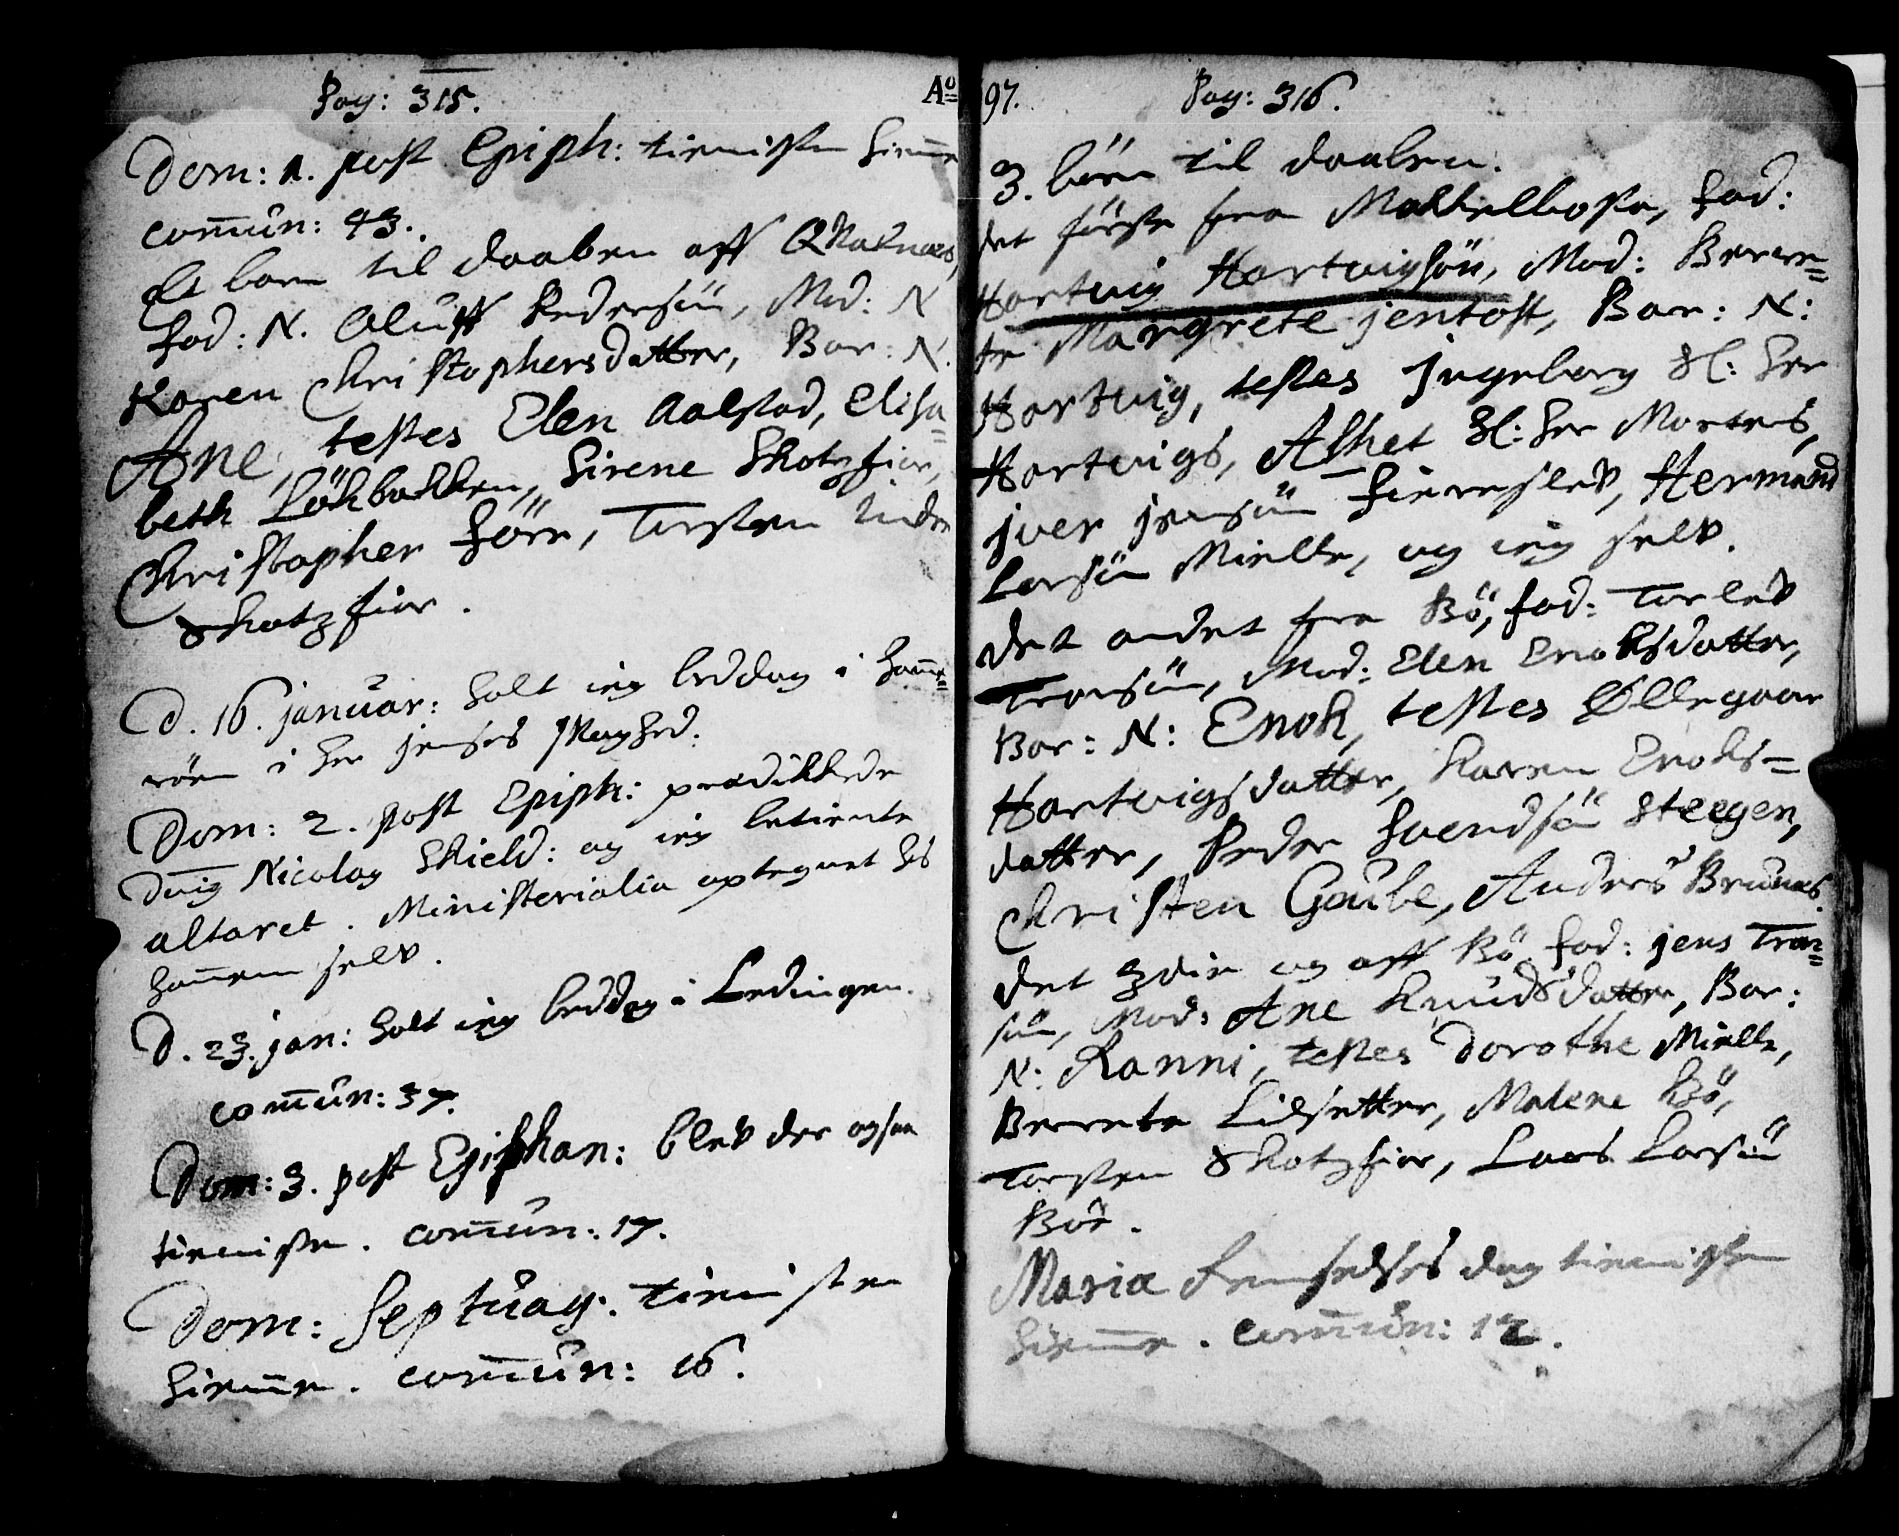 Pag: 315.
Dom: 1. post Epiph: tienisten hiem̄e
com̄un: 43.
Et barn til daaben aff Qvaknæs,
fad: N. Oluff Pedersøn, Mod: N
Karen Christophersdatter, Bar: N.
Ane, testes Elen Aalstad, Elisa=
beth Løkbakken, Sirene Skotzfior,
Christopher Före, Torsten Inden
Skotzfior.
D. 16. januar: holt ieg beddag i Ham̄e=
röen i her jenses
Dom: 2. post Epiph: prædikkede
Nicolay Skield: og ieg betiente
altaret. Ministerialia optegnet hos
ham̄em selv.
D. 23. jan: holt ieg beddag i Lødingen.
com̄un: 37.
Dom: 3. post Epiphan: blev der ogsaa
tieniste. com̄un: 17.
Dom: Septuag: tienisten
hiem̄e. com̄un: 16.
Aº 97.
Pag: 316.
3. börn til daaben.
det förste fra Mokkelbosta, fad:
Hartvig Hartvigsön, Mod: Beren=
te Margrete jentoft, Bar: N:
Hartvig, testes Ingeborg Sl: her
Hartvigs, Alhet Sl: her Mortens,
jver jensön Fiereslev, Hermand
Larsön Mielle, og ieg selv.
det andet fra Bö, fad: Torlev
Tronsön, Mod: Elen Enoksdatter,
Bar: N: Enok, testes Øllegaar
Hartvigsdatter, Karen Enoks=
datter, Peder Svendsön Steegen,
Christen Gaube, Anders Brunæs.
det 3die og aff Bö fad: jens Tron=
sön, Mod: Ane Knudsdatter, Bar:
N: Ranni, testes Dorothe Mielle,
Berrete Lilsetter, Malene Bö,
Torsten Skotzfior, Laers Larsön
Böe.
Mariæ Renselses dag tienisten
hiem̄e. com̄un: 12.